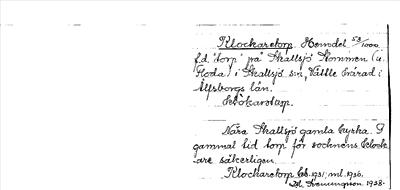 Klockaretorp Hemdel 53/1000
f.d. "torp" på Skallsjö Kommen (u.
Floda) i Skallsjö sn, Vättle härad i
Älfsborgs län.
Nära Skallsjö gamla kyrka. I
gammal tid torp för socknens klock-
are säkerligen.
Klockaretorp Eb. 1931; ml. 1936.
1938.